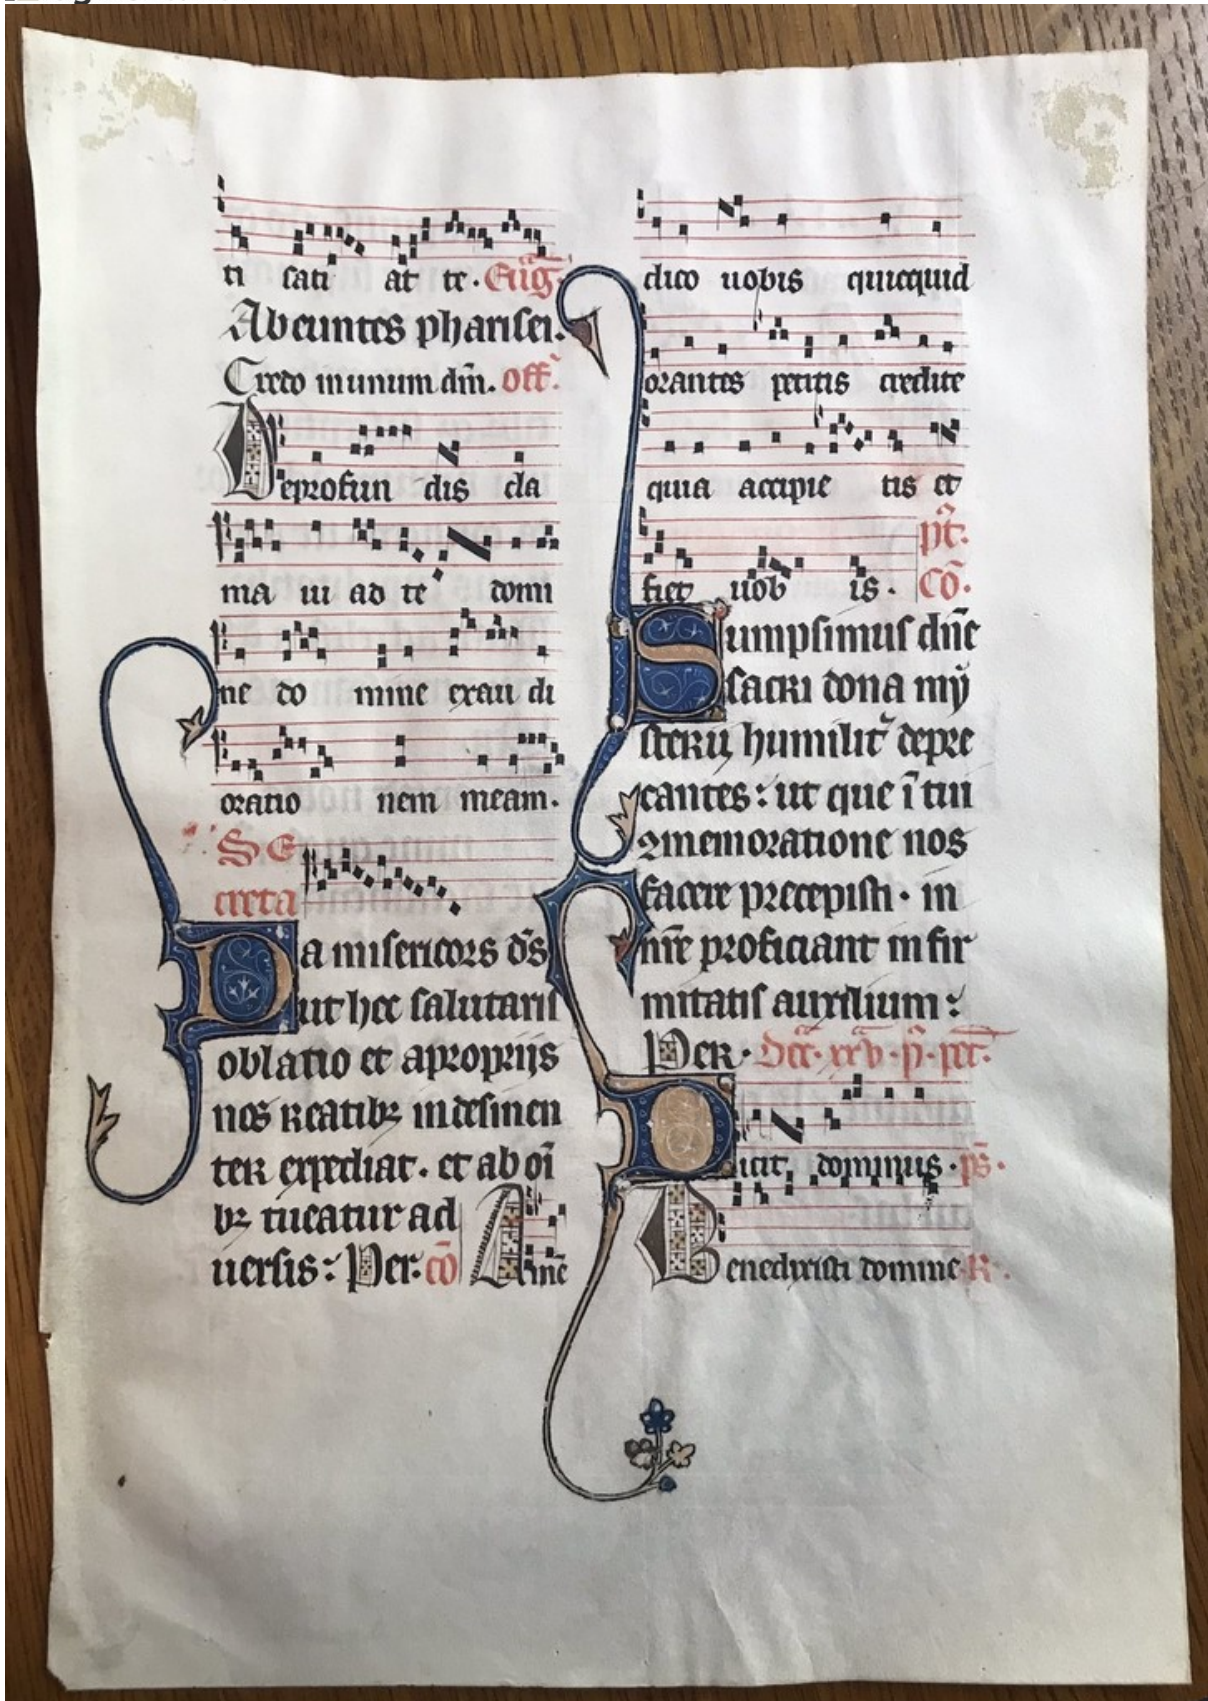 ti cati at te. Eug̅.
Abeuntes pharisei.
Credo in unum dm̅. off̅.
Deprofun dis cla
ma ui ad te domi
ne do mine exau di
oratio nem meam.
Se
creta
Da misericors ds̅
ut hec salutaris
oblatio et a proprijs
nos reatibꝫ indesinen
ter expediat. et ab oi̅
bꝫ tueatur ad
uersis: Per. co̅ Ame̅
dico uobis quicquid
orantes petitis credite
quia accipie tis et
fiet uob is. pt̅.
Co̅.
Sumpsimus dn̅e
sacri dona my
sterij humilit̅ depre
cantes: ut que i̅ tui
ꝯmemoratione nos
facere precepisti. in
nr̅e proficiant infir
mitatis auxilium:
Per. Dc̅c̅. xxv. p̅. pct̅.
Dicit dominus. ps̅.
Benedixisti domine R.